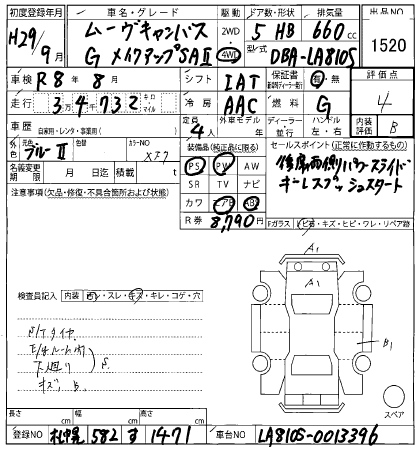 初度登録年月 車名・グレード 駆動 ドア数・形状 排気量 出品NO
H29/9月 ムーヴキャンバス 2WD・4WD 5 HB 660cc 1520
G メイクアップSAⅡ 型式 DBA-LA810S
車検 R8年 8月 シフト IAT 保証書 有・無 評価点
走行 3万4千732 キロ・マイル 冷房 AAC 燃料 G 4
車歴 自家用・レンタ・事業用( ) 定員 4人 外車モデル 年 ディーラー 並行 ハンドル 左・右 内装評価 B
外色 元色 ブルーⅡ 色替 カラーNO 装備品(純正品に限る) セールスポイント(正常に作動するもの)
名義変更期限 月 日 リサイクル預託 積載 t PS PW AW 後席両側パワースライド
注意事項(欠品・修復・不具合箇所およびその状態) SR TV ナビ キーレスプッシュスタート
カワ エアB AB
R券 8,790円
Fガラス トビ石・キズ・ヒビ・ワレ・リペア跡
A1
A1
検査員記入 内装 スレ・キズ・キレ・コゲ・穴
下廻り S
B1
キズ、B
スペア
長さ cm 幅 cm 高さ cm
登録NO 札幌 582 す 1471 車台NO LA810S-0013396